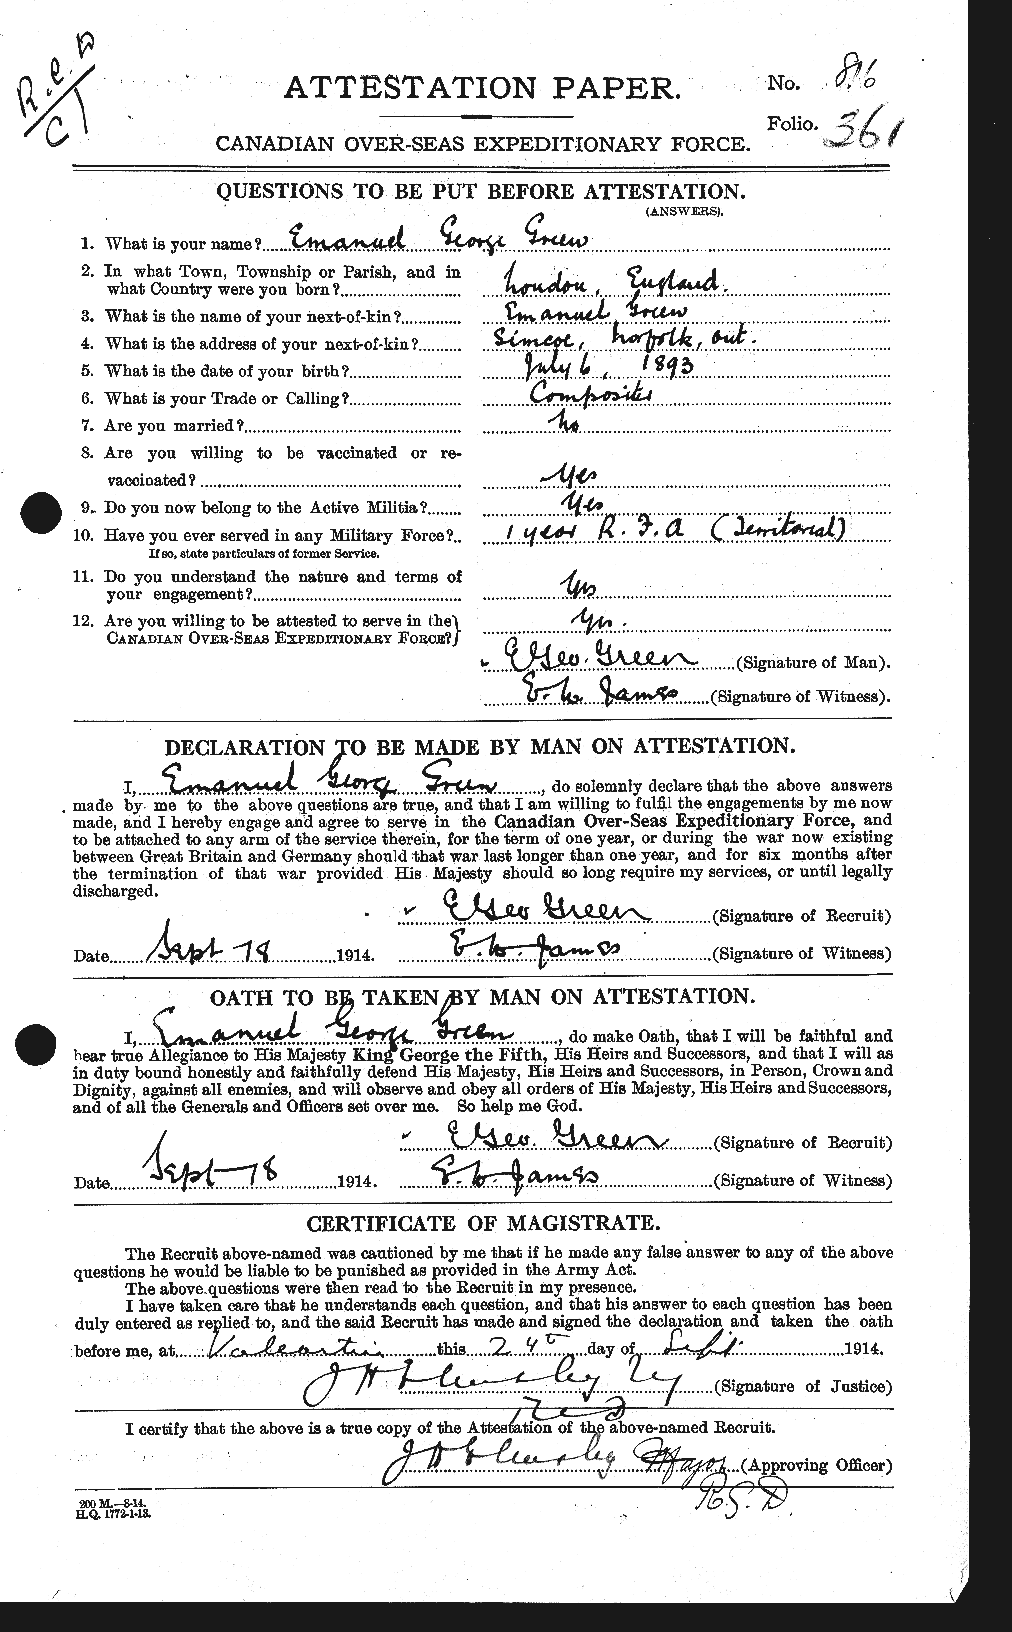 R.C.D
C 1
ATTESTATION PAPER.
No. 816
Folio. 361
CANADIAN OVER-SEAS EXPEDITIONARY FORCE.
QUESTIONS TO BE PUT BEFORE ATTESTATION.
(ANSWERS).
1. What is your name? Emanuel George Green
2. In what Town, Township or Parish, and in
what Country were you born? London, England.
3. What is the name of your next-of-kin? Emanuel Green
4. What is the address of your next-of-kin? Simcoe, Norfolk, Ont.
5. What is the date of your birth? July 6, 1893
6. What is your Trade or Calling? Compositer
7. Are you married? No
8. Are you willing to be vaccinated or re-
vaccinated? Yes
9. Do you now belong to the Active Militia? Yes
10. Have you ever served in any Military Force? 1 year R.F.A (Territorial)
If so, state particulars of former Service.
11. Do you understand the nature and terms of
your engagement? Yes
12. Are you willing to be attested to serve in the
CANADIAN OVER-SEAS EXPEDITIONARY FORCE? Yes.
E Geo. Green (Signature of Man).
E. W. James (Signature of Witness).
DECLARATION TO BE MADE BY MAN ON ATTESTATION.
I, Emanuel George Green, do solemnly declare that the above answers
made by me to the above questions are true, and that I am willing to fulfil the engagements by me now
made, and I hereby engage and agree to serve in the Canadian Over-Seas Expeditionary Force, and
to be attached to any arm of the service therein, for the term of one year, or during the war now existing
between Great Britain and Germany should that war last longer than one year, and for six months after
the termination of that war provided His Majesty should so long require my services, or until legally
discharged.
E Geo Green (Signature of Recruit)
Date Sept 18 1914. E. W. James (Signature of Witness)
OATH TO BE TAKEN BY MAN ON ATTESTATION.
I, Emanuel George Green, do make Oath, that I will be faithful and
bear true Allegiance to His Majesty King George the Fifth, His Heirs and Successors, and that I will as
in duty bound honestly and faithfully defend His Majesty, His Heirs and Successors, in Person, Crown and
Dignity, against all enemies, and will observe and obey all orders of His Majesty, His Heirs and Successors,
and of all the Generals and Officers set over me. So help me God.
E Geo. Green (Signature of Recruit)
Date Sept 18 1914. E. W. James (Signature of Witness)
CERTIFICATE OF MAGISTRATE.
The Recruit above-named was cautioned by me that if he made any false answer to any of the above
questions he would be liable to be punished as provided in the Army Act.
The above questions were then read to the Recruit in my presence.
I have taken care that he understands each question, and that his answer to each question has been
duly entered as replied to, and the said Recruit has made and signed the declaration and taken the oath
before me, at Valcartier this 24th day of Sept 1914.
J H Elmsley (Signature of Justice)
I certify that the above is a true copy of the Attestation of the above-named Recruit.
J H Elmsley Major (Approving Officer)
R.C.D.
200 M.—8-14.
H.Q. 1772-1-13.